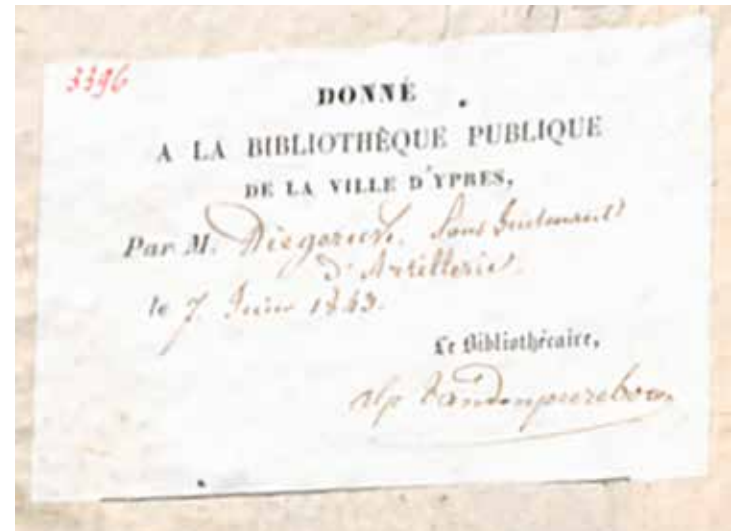 3396
DONNÉ
A LA BIBLIOTHÈQUE PUBLIQUE
DE LA VILLE D'YPRES,
Par M. Sous Lieutenant
D'Artillerie
le 7 Juin 1843.
Le Bibliothécaire,
Alp Vandenpeereboom